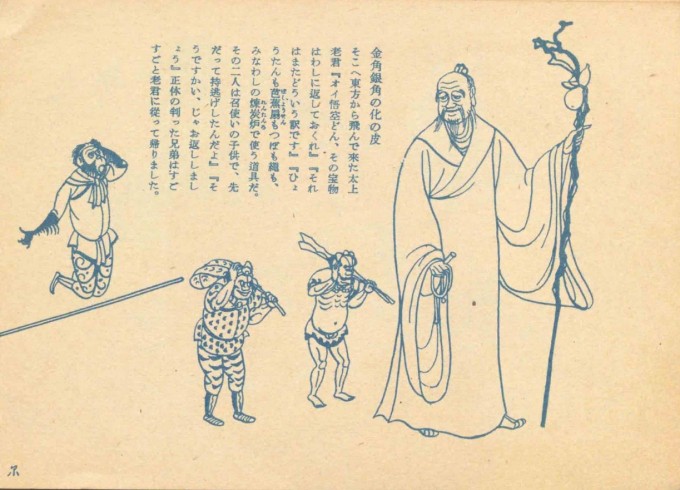 金角銀角の化の皮
そこへ東方から飛んで来た太上
老君『オイ悟空どん、その宝物
はわしに返しておくれ』『それ
はまたどういう訳です』『ひょ
うたんも芭蕉扇もつぼも繩も、
みなわしの煉炭炉で使う道具だ。
その二人は召使いの子供で、先
だって持逃げしたんだよ』『そ
うですかい、じゃお返ししまし
ょう』正体の判った兄弟はすご
すごと老君に従って帰りました。